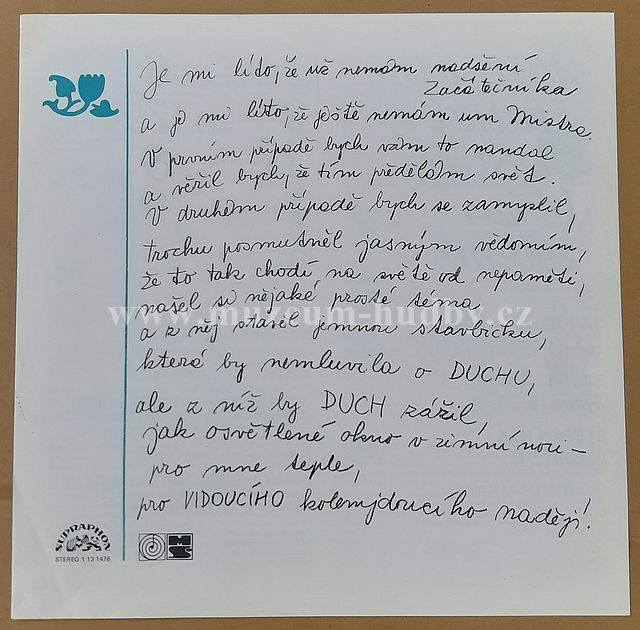 Je mi líto, že už nemám nadšení
začátečníka
a je mi líto, že ještě nemám um Mistra.
V prvním případě bych vám to nandal
a věřil bych, že tím předělám svět.
V druhém případě bych se zamyslil,
trochu posmutněl jasným vědomím,
že to tak chodí na světě od nepaměti,
našel si nějaké prosté téma
www.muzeum-hudby.cz
a z něj stavěl jemnou stavbičku,
která by nemluvila o DUCHU,
ale z níž by DUCH zářil,
jak osvětlené okno v zimní noci –
pro mne teple,
pro VIDOUCÍHO kolemjdoucího nadějí!
SUPRAPHON
STEREO 1 13 1476